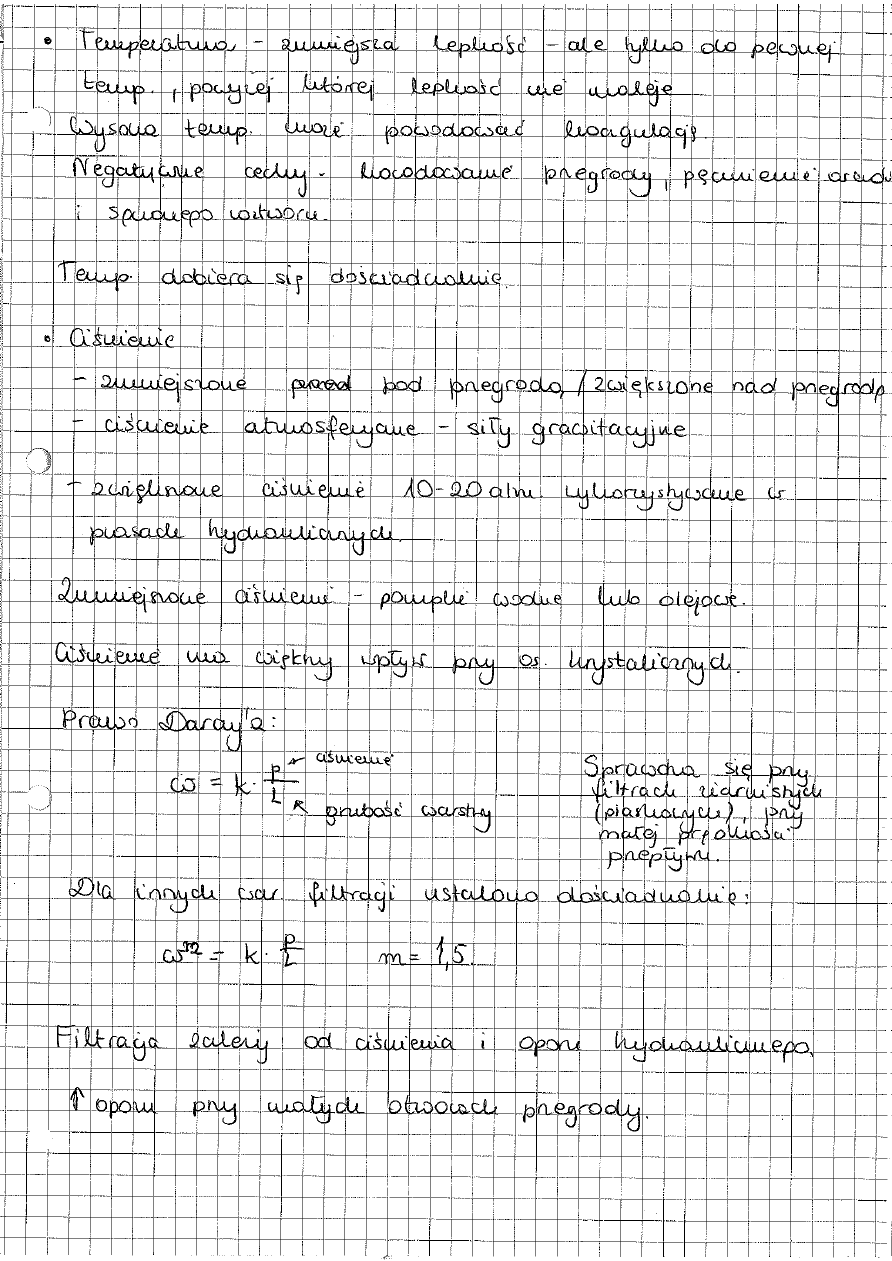 • Temperatura - zmniejsza lepkość - ale tylko do pewnej
temp., powyżej której lepkość nie maleje
Wysoka temp. może powodować koagulację.
Negatywne cechy - korodowanie przegrody, pęcznienie osadu
i smolnego roztworu.
Temp. dobiera się doświadczalnie.
• Ciśnienie
- zmniejszone pod przegrodą / zwiększone nad przegrodą
- ciśnienie atmosferyczne - siły grawitacyjne
- zwiększone ciśnienie 10-20 atm. wykorzystywane w
prasach hydraulicznych.
Zmniejszone ciśnienie - pompki wodne lub olejowe.
Ciśnienie ma większy wpływ przy os. krystalicznych.
Prawo Darcy'a:
ω = k · p/L ciśnienie
grubość warstwy
Sprawdza się przy
filtrach ziarnistych
(piaskowych), przy
małej prędkości
przepływu.
Dla innych war. filtracji ustalono doświadczalnie:
ω^m = k · p/L m = 1,5.
Filtracja zależy od ciśnienia i oporu hydraulicznego.
↑ oporu przy małych otworach przegrody.